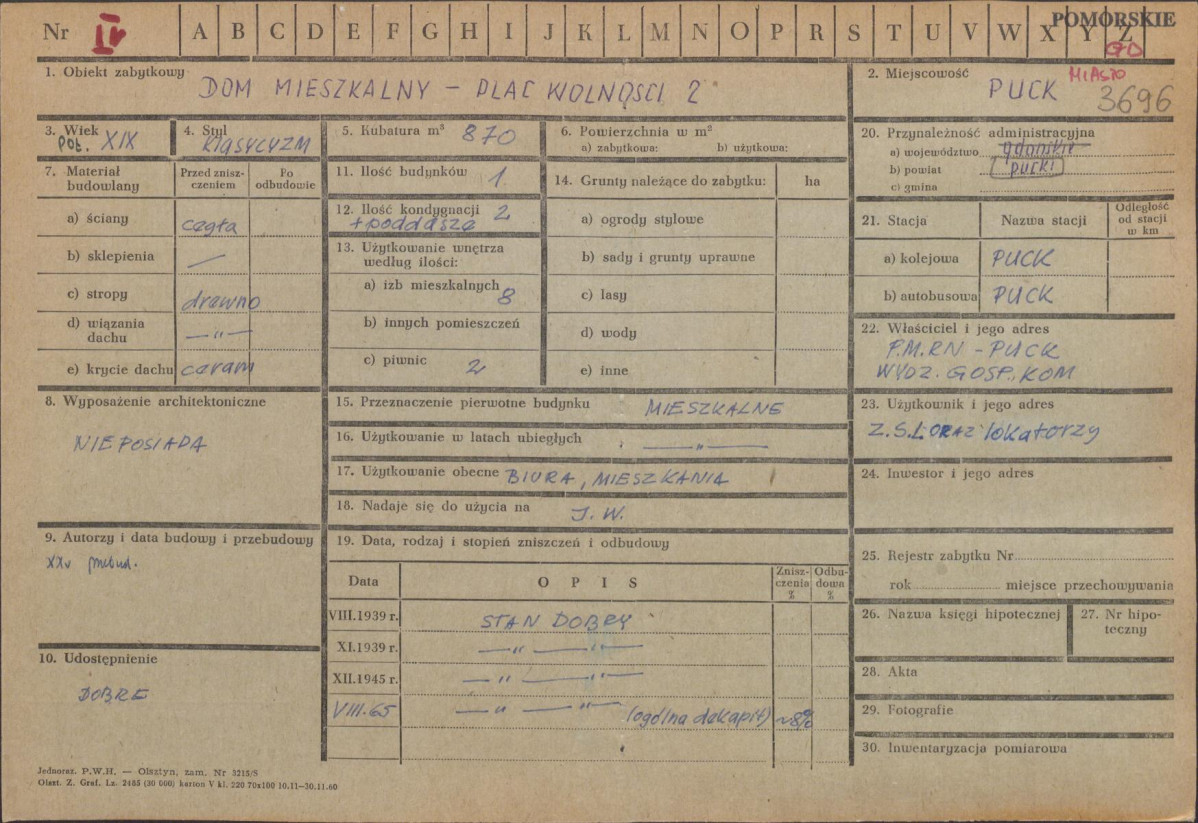 POMORSKIE
Nr IV A B C D E F G H I J K L M N O P R S T U V W X Y Z
GD
1. Obiekt zabytkowy
DOM MIESZKALNY – PLAC WOLNOSCI 2
2. Miejscowość
PUCK MIASTO
3696
3. Wiek
poł. XIX
4. Styl
klasycyzm
5. Kubatura m³ 870
6. Powierzchnia w m²
a) zabytkowa: b) użytkowa:
7. Materiał budowlany
Przed znisz-
czeniem
Po
odbudowie
a) ściany cegła
b) sklepienia —
c) stropy drewno
d) wiązania
dachu —„—
e) krycie dachu ceram
11. Ilość budynków 1
12. Ilość kondygnacji 2
+ poddasze
13. Użytkowanie wnętrza
według ilości:
a) izb mieszkalnych 8
b) innych pomieszczeń
c) piwnic 2
14. Grunty należące do zabytku: ha
a) ogrody stylowe
b) sady i grunty uprawne
c) lasy
d) wody
e) inne
20. Przynależność administracyjna
a) województwo gdańskie
b) powiat pucki
c) gmina
21. Stacja Nazwa stacji
Odległość
od stacji
w km
a) kolejowa PUCK
b) autobusowa PUCK
22. Właściciel i jego adres
P.M.RN – PUCK
WYDZ. GOSP. KOM
8. Wyposażenie architektoniczne
NIE POSIADA
15. Przeznaczenie pierwotne budynku MIESZKALNE
16. Użytkowanie w latach ubiegłych —„—
17. Użytkowanie obecne BIURA, MIESZKANIA
18. Nadaje się do użycia na J. W.
23. Użytkownik i jego adres
Z.S.L ORAZ lokatorzy
24. Inwestor i jego adres
9. Autorzy i data budowy i przebudowy
XXw
10. Udostępnienie
DOBRE
19. Data, rodzaj i stopień zniszczeń i odbudowy
Data OPIS
Znisz-
czenia
%
Odbu-
dowa
%
VIII.1939 r. STAN DOBRY
XI.1939 r. —„— —„—
XII.1945 r. —„— —„—
VIII.65 —„— —„— (ogólna dekapit) ~8%
25. Rejestr zabytku Nr
rok miejsce przechowywania
26. Nazwa księgi hipotecznej
27. Nr hipo-
teczny
28. Akta
29. Fotografie
30. Inwentaryzacja pomiarowa
Jednoraz. P.W.H. — Olsztyn, zam. Nr 3215/S
Olszt. Z. Graf. Lz. 2485 (30 000) karton V kl. 220 70x100 10.11—30.11.60